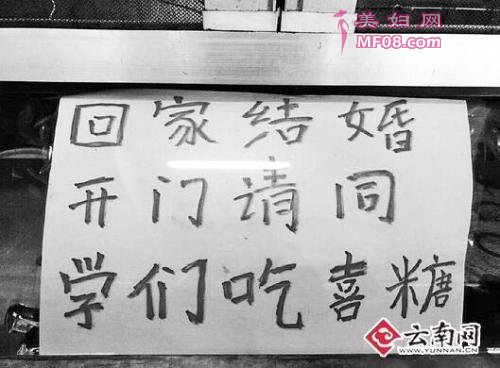 美妇网
MF08.com
回家结婚
开门请同
学们吃喜糖
云南网
WWW.YUNNAN.CN